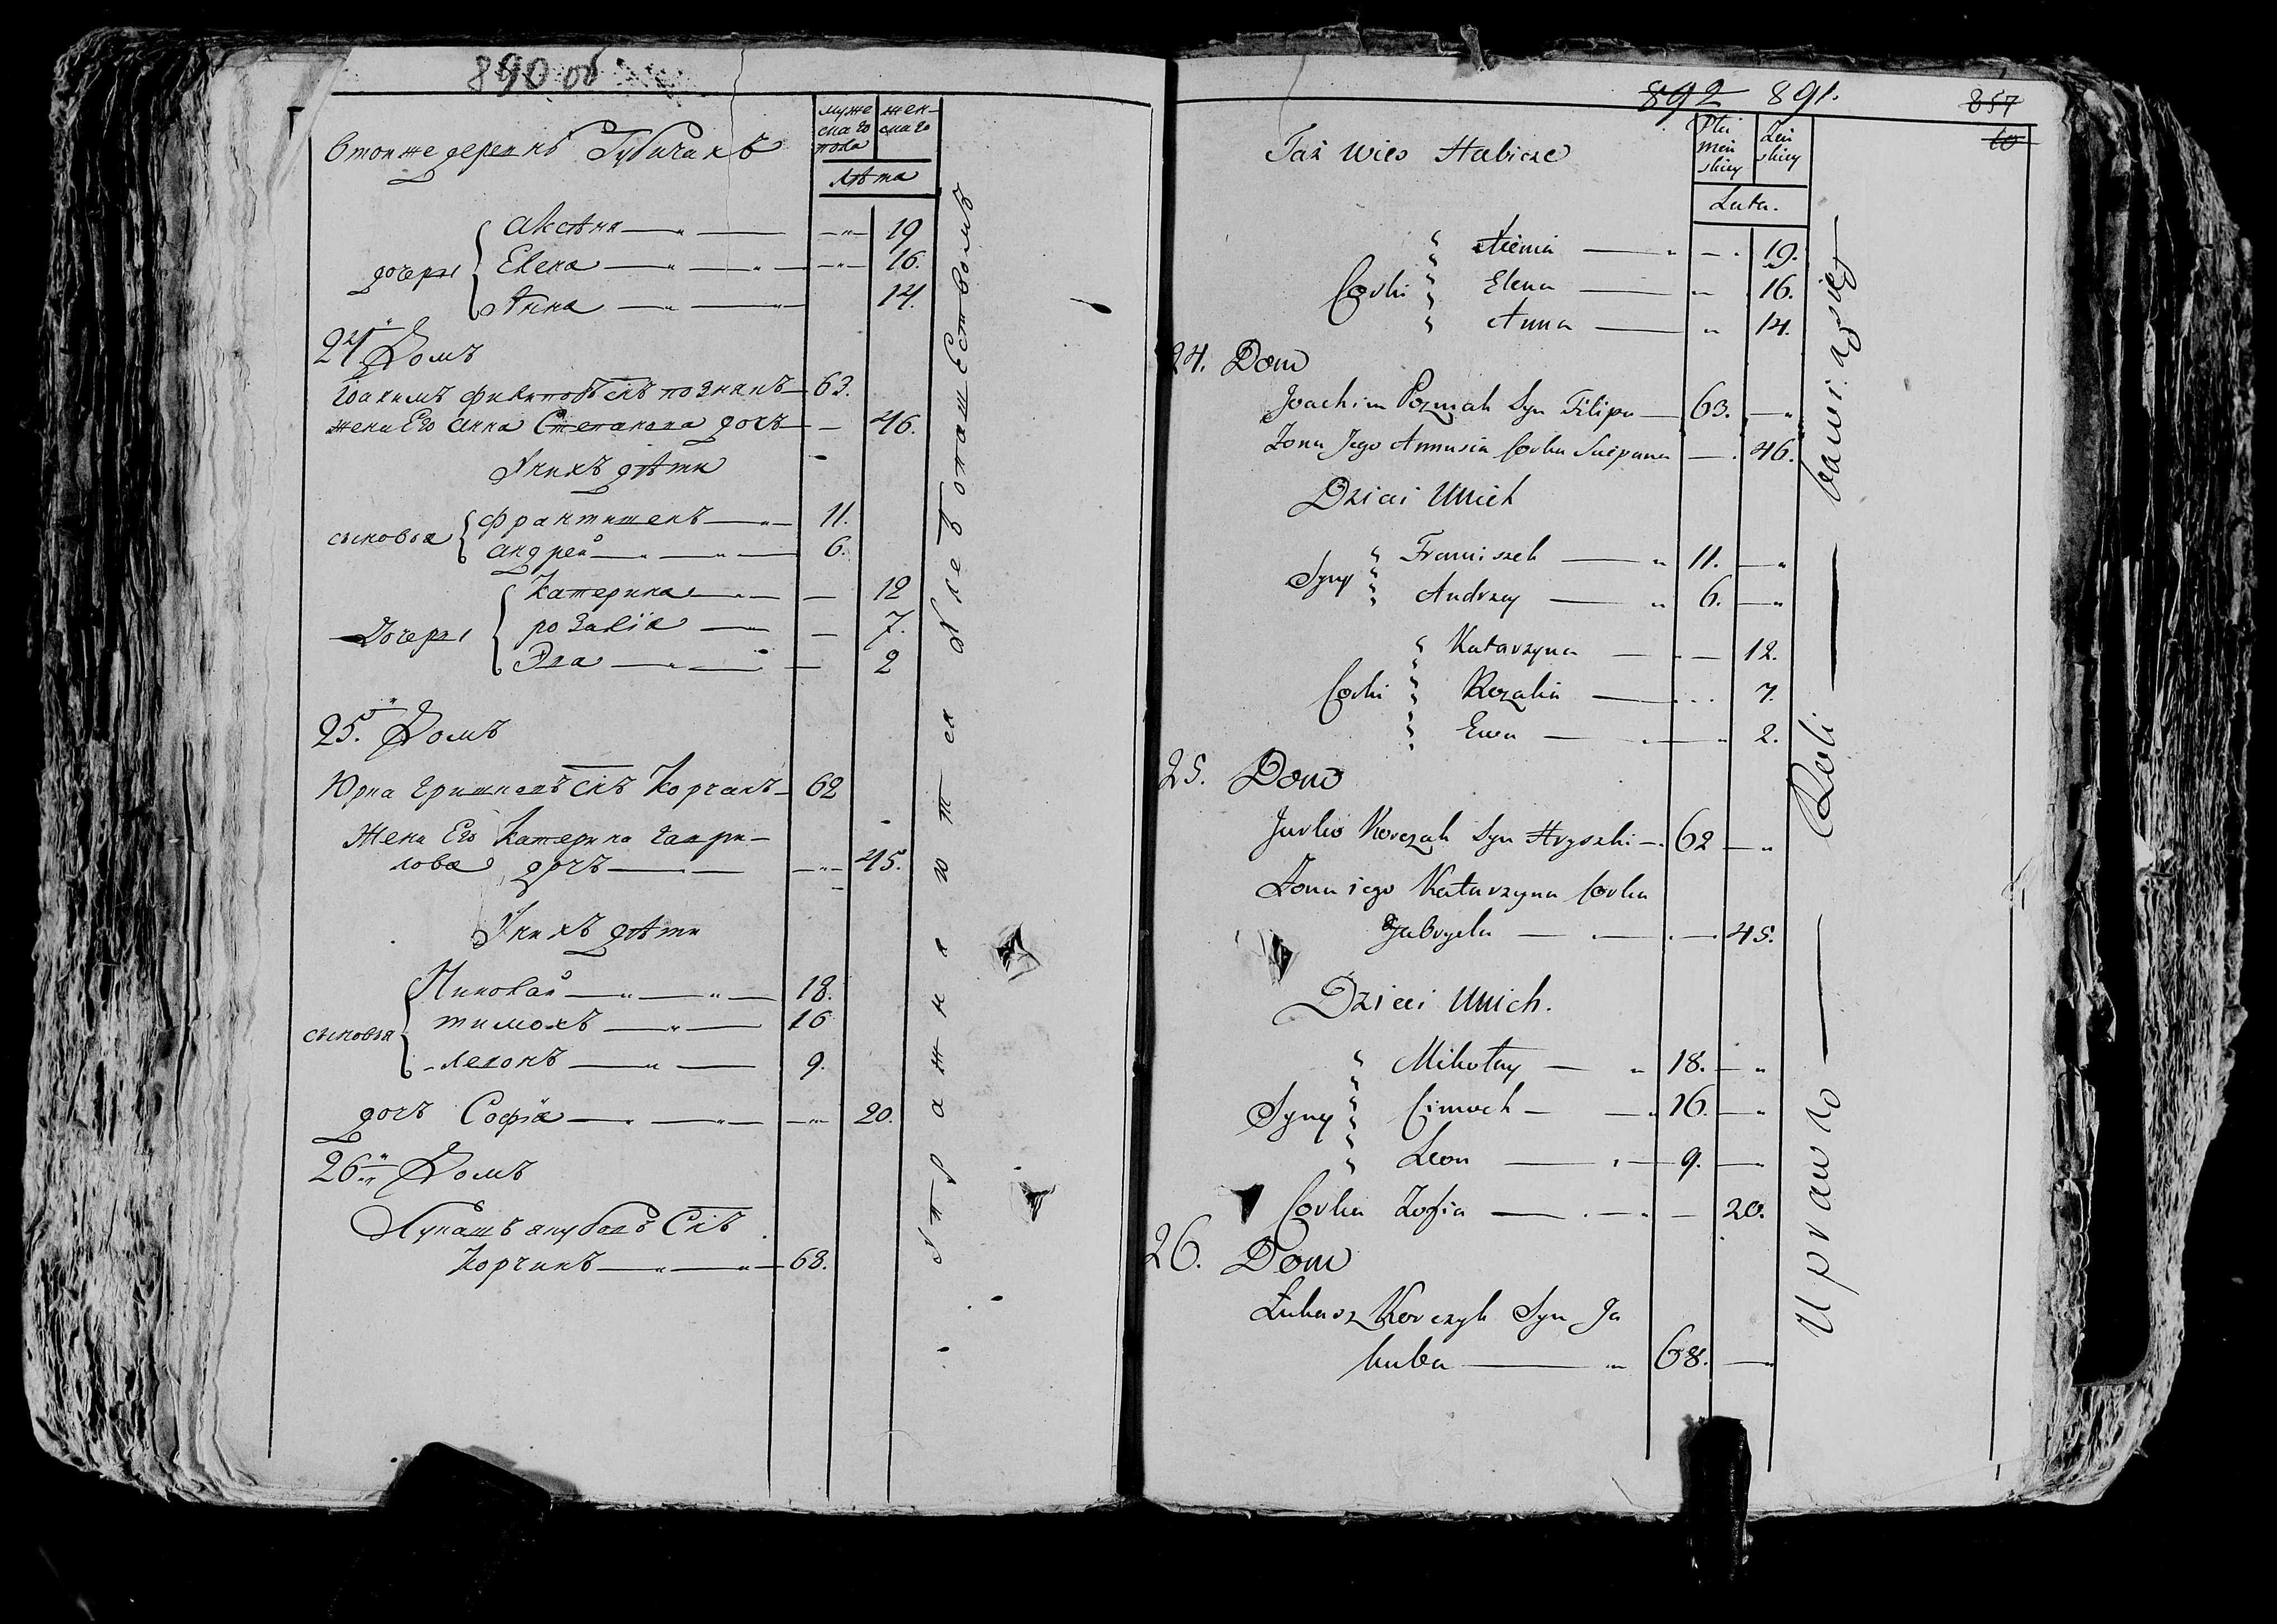 890 об
Втойже деревнѣ Губичахъ
муже
ска го
пола
жен-
ска го
Лѣта
дочери
Аксѣня — " — — " — 19
Елена — " — " — — " — 16.
Анна — " — " — 14.
24. Домъ
Іоахимъ Филиповъ снъ познякъ — 63.
жена Его Анна Степанова дочь — — 46.
У нихъ дѣти
сыновья
Францишекъ — " — 11.
Андрей — " — " — 6.
Дочери
Катерина — " — — 12
розалія — " — 7.
Эва — " — — 2
25. Домъ
Юрка Гришковъ снъ Корчакъ — 62
Жена Его Катерина Гаври-
лова дочь — — — " — 45.
У нихъ дѣти
сыновья
Николай — " — " — 18.
тимохъ — " — 16
леонъ — " — 9.
дочь Софія — " — " — — " — 20.
26. Домъ
Лукашъ якубовъ Снъ
Корчикъ — " — " — 68.
Упражняются хлебопашествомъ
892 891.
857
10
Taż wieś Hubicze
Płci
męs
skiey
Żeń
skiey
Lata.
Corki
Xienia — " — . 19.
Elena — " — 16.
Anna — " 14.
24. Dom
Joachim Pozniak Syn Filipa — 63. — "
Zona Jego Annusia Corka Sciepana — . 46.
Dzieci Unich
Syny
Franciszek — " 11. — "
Andrzey — " 6. — "
Corki
Katarzyna — . — 12.
Rozalia — . . 7.
Ewa — . — " 2.
25. Dom
Jurko Korczak Syn Hryszki — . 62 — "
Zona iego Katarzyna Corka
Gabryela — . — . — . 45.
Dzieci Unich.
Syny
Mikołay — " 18. — "
Cimoch — — " 16. — "
Leon — . — 9. — "
Corka Zofia — . — " — 20.
26. Dom
Łukasz Korczyk Syn Ja
kuba — " 68. — "
Uprawą — Roli — bawią się —